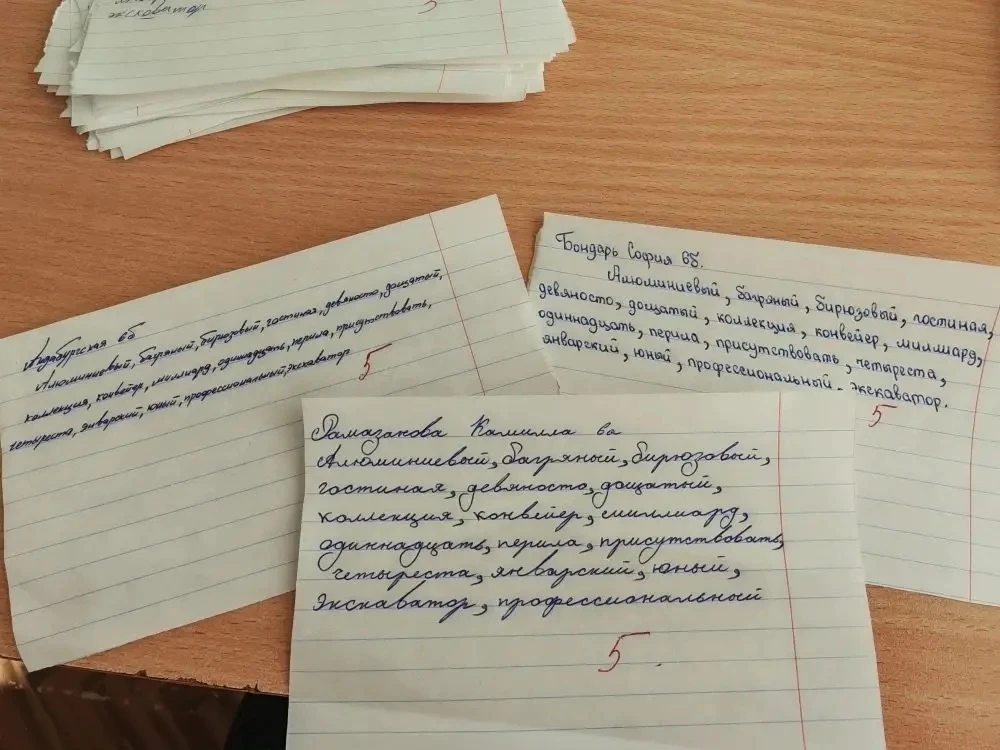 экскаватор
5
Андабургская 6б
Алюминиевый, багряный, бирюзовый, гостиная, девяносто, дощатый,
коллекция, конвейер, миллиард, одиннадцать, перила, присутствовать,
четыреста, январский, юный, профессиональный, экскаватор
5
Бондарь София 6б.
Алюминиевый, багряный, бирюзовый, гостиная,
девяносто, дощатый, коллекция, конвейер, миллиард,
одиннадцать, перила, присутствовать, четыреста,
январский, юный, профессиональный. экскаватор.
5
Рамазанова Камилла 6а
Алюминиевый, багряный, бирюзовый,
гостиная, девяносто, дощатый,
коллекция, конвейер, миллиард,
одиннадцать, перила, присутствовать,
четыреста, январский, юный,
экскаватор, профессиональный
5